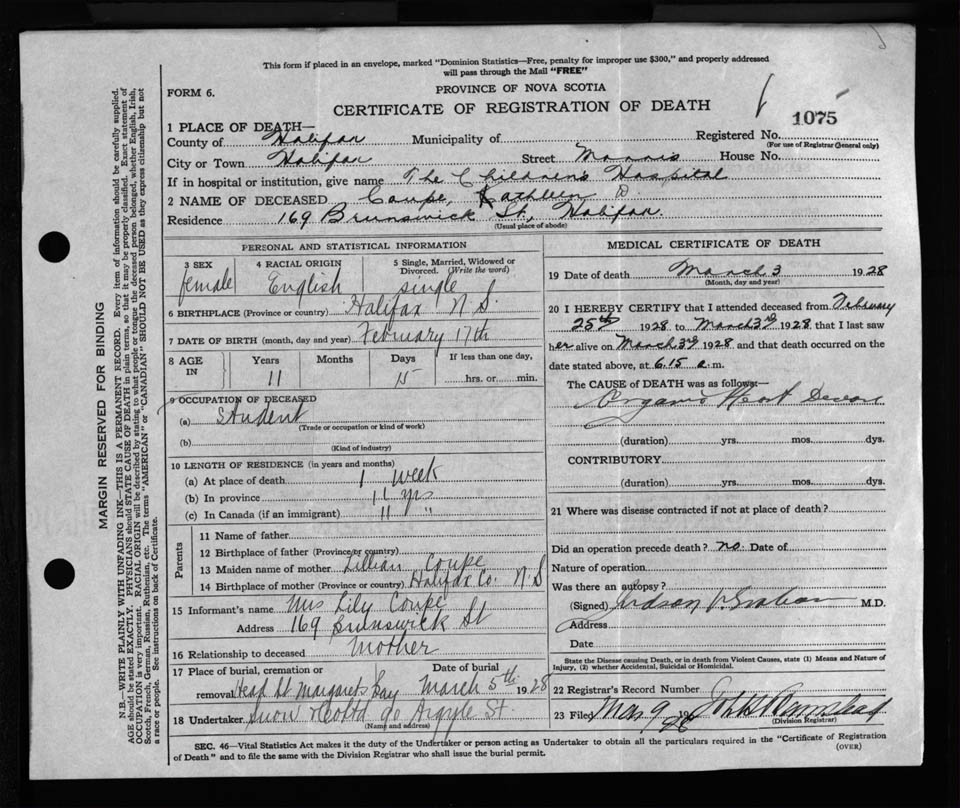 This form if placed in an envelope, marked "Dominion Statistics—Free, penalty for improper use $300," and properly addressed
will pass through the Mail "FREE"
FORM 6.
PROVINCE OF NOVA SCOTIA
CERTIFICATE OF REGISTRATION OF DEATH
1075
1 PLACE OF DEATH—
County of Halifax Municipality of Registered No.
(For use of Registrar General only)
City or Town Halifax Street Morris House No.
If in hospital or institution, give name The Children's Hospital
2 NAME OF DECEASED Coupe, Kathleen D
Residence 169 Brunswick St, Halifax.
(Usual place of abode)
PERSONAL AND STATISTICAL INFORMATION
3 SEX female
4 RACIAL ORIGIN English
5 Single, Married, Widowed or Divorced. (Write the word) single
6 BIRTHPLACE (Province or country) Halifax N.S.
7 DATE OF BIRTH (month, day and year) February 17th
8 AGE IN Years 11 Months Days 15 If less than one day, hrs. or min.
9 OCCUPATION OF DECEASED
(a) Student
(Trade or occupation or kind of work)
(b)
(Kind of industry)
10 LENGTH OF RESIDENCE (in years and months)
(a) At place of death 1 week
(b) In province 11 yrs
(c) In Canada (if an immigrant) 11 "
Parents
11 Name of father
12 Birthplace of father (Province or country)
13 Maiden name of mother Lillian Coupe
14 Birthplace of mother (Province or country) Halifax Co. N.S
15 Informant's name Mrs Lily Coupe
Address 169 Brunswick St
16 Relationship to deceased Mother
17 Place of burial, cremation or removal Head St Margarets Bay Date of burial March 5th 1928
18 Undertaker Snow & Co Ltd 90 Argyle St.
(Name and address)
MEDICAL CERTIFICATE OF DEATH
19 Date of death March 3 1928
(Month, day and year)
20 I HEREBY CERTIFY that I attended deceased from February
25th 1928 to March 3rd 1928 that I last saw
her alive on March 3rd 1928 and that death occurred on
date stated above, at 6.15 a.m.
The CAUSE of DEATH was as follows:—
Organic Heart
(duration) yrs. mos. dys.
CONTRIBUTORY
(duration) yrs. mos. dys.
21 Where was disease contracted if not at place of death?
Did an operation precede death? no Date of
Nature of operation
Was there an autopsy?
(Signed) Judson V. Graham M.D.
Address
Date
State the Disease causing Death, or in death from Violent Causes, state (1) Means and Nature of
Injury, (2) whether Accidental, Suicidal or Homicidal.
22 Registrar's Record Number
23 Filed Mar 9 1928
(Division Registrar)
SEC. 46—Vital Statistics Act makes it the duty of the Undertaker or person acting as Undertaker to obtain all the particulars required in the "Certificate of Registration
of Death" and to file the same with the Division Registrar who shall issue the burial permit.
(OVER)
MARGIN RESERVED FOR BINDING
N.B.—WRITE PLAINLY WITH UNFADING INK—THIS IS A PERMANENT RECORD. Every item of information should be carefully supplied.
AGE should be stated EXACTLY. PHYSICIANS should STATE CAUSE OF DEATH in plain terms, so that it may be properly classified. Exact statement of
OCCUPATION is very important. RACIAL ORIGIN will be described by stating to what people or tongue the deceased person belonged, whether English, Irish,
Scotch, French, German, Russian, Ruthenian, etc. The terms "AMERICAN" or "CANADIAN" SHOULD NOT BE USED as they express citizenship but not
a race or people. See instructions on back of Certificate.